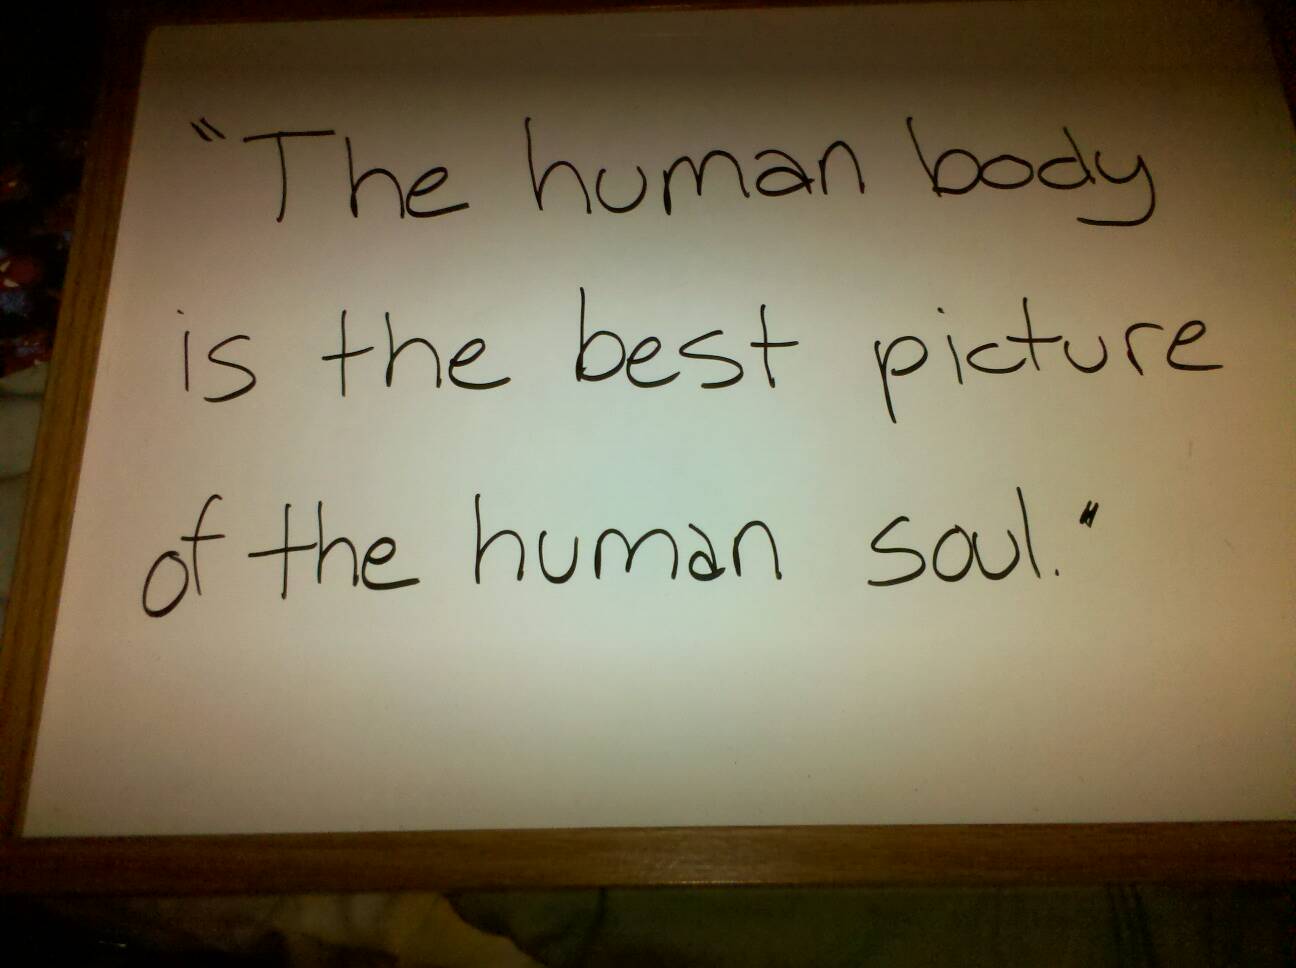 "The human body
is the best picture
of the human soul."